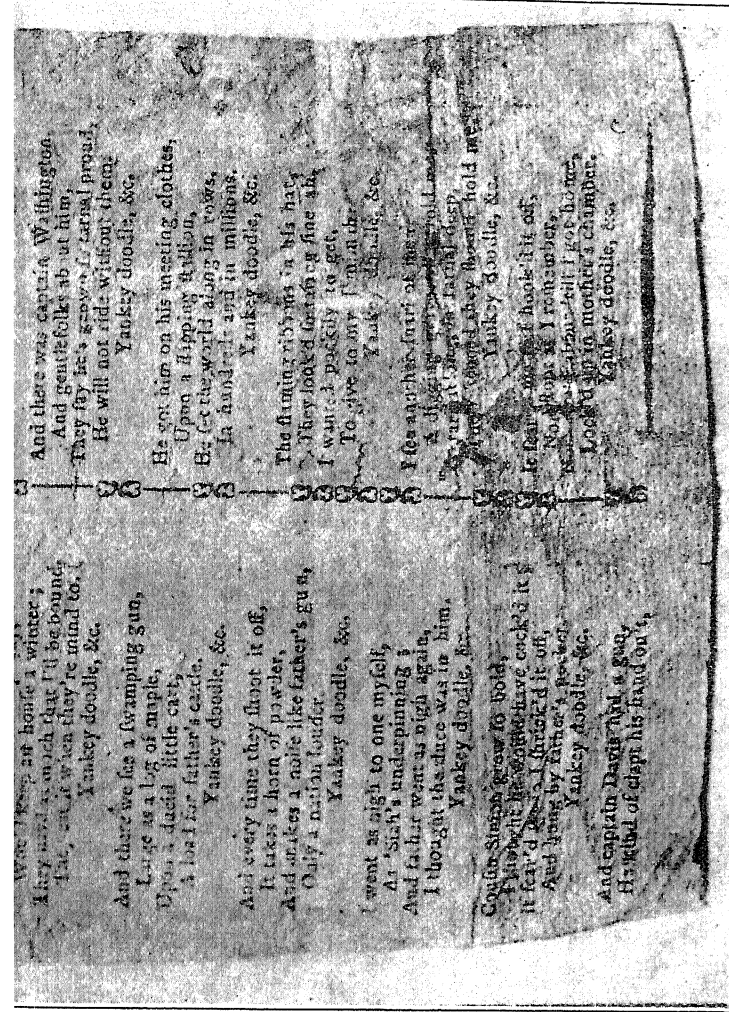 an houſe a winter;
They as much that I'll be bound,
it when they're mind to.
Yankey doodle, &c.
And there we ſee a ſwamping gun,
Large as a log of maple,
Upon a ducid little cart,
A load for father's cattle.
Yankey doodle, &c.
And every time they ſhoot it off,
It takes a horn of powder,
And makes a noiſe like father's gun,
Only a nation louder
Yankey doodle, &c.
I went as nigh to one myſelf,
As 'Siah's underpinning;
And father went as nigh again,
I thought the duce was in him.
Yankey doodle, &c.
Couſin Simon grew ſo bold,
I thought he would have cock'd it;
It ſcar'd me ſo I ſhrink'd it off,
And hung by father's pocket.
Yankey doodle, &c.
And captain Davis had a gun,
He kind of clapt his hand on't,
And there was captain Waſhington,
And gentlefolks about him,
They ſay he's grown ſo tarnal proud,
He will not ride without them.
Yankey doodle, &c.
He got him on his meeting clothes,
Upon a ſlapping ſtallion,
He ſet the world along in rows,
In hundreds and in millions.
Yankey doodle, &c.
The flaming ribbons in his hat,
They look'd ſo taring fine ah,
I wanted pockily to get,
To give to my Jemimah.
Yankey doodle, &c.
I ſee another ſnarl of men
A digging graves told me,
So tarnal long, ſo tarnal deep,
they ſhould hold me.
Yankey doodle, &c.
It ſcar'd me ſo I hook'd it off,
Nor ſtopt as I remember,
Nor turn'd about till I got home,
Lock'd up in mother's chamber.
Yankey doodle, &c.